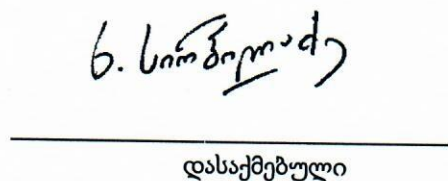 ნ. სირბილაძე
დასაქმებული